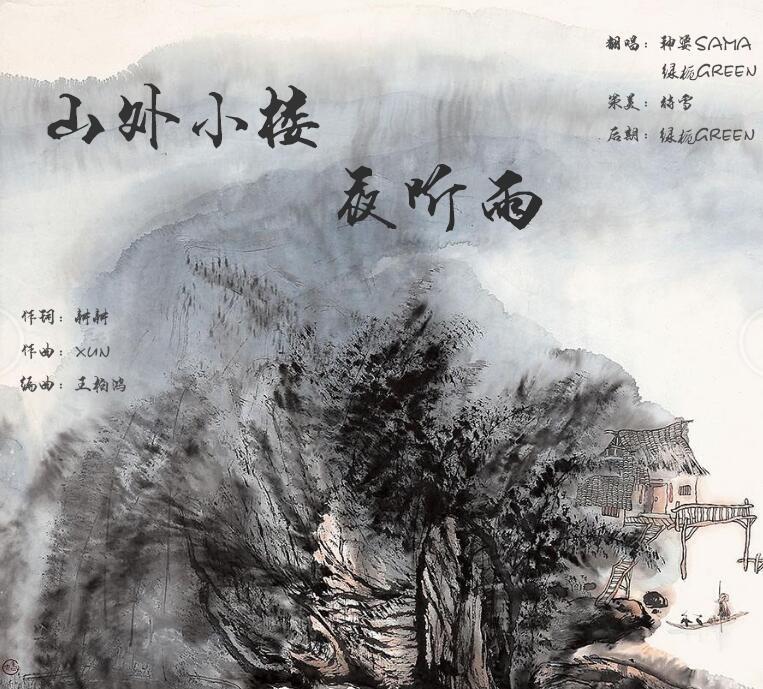 山外小楼
夜听雨
翻唱：种粟SAMA
绿栀GREEN
策美：椅雪
后期：绿栀GREEN
作词：耕耕
作曲：XUN
编曲：王柏鸿